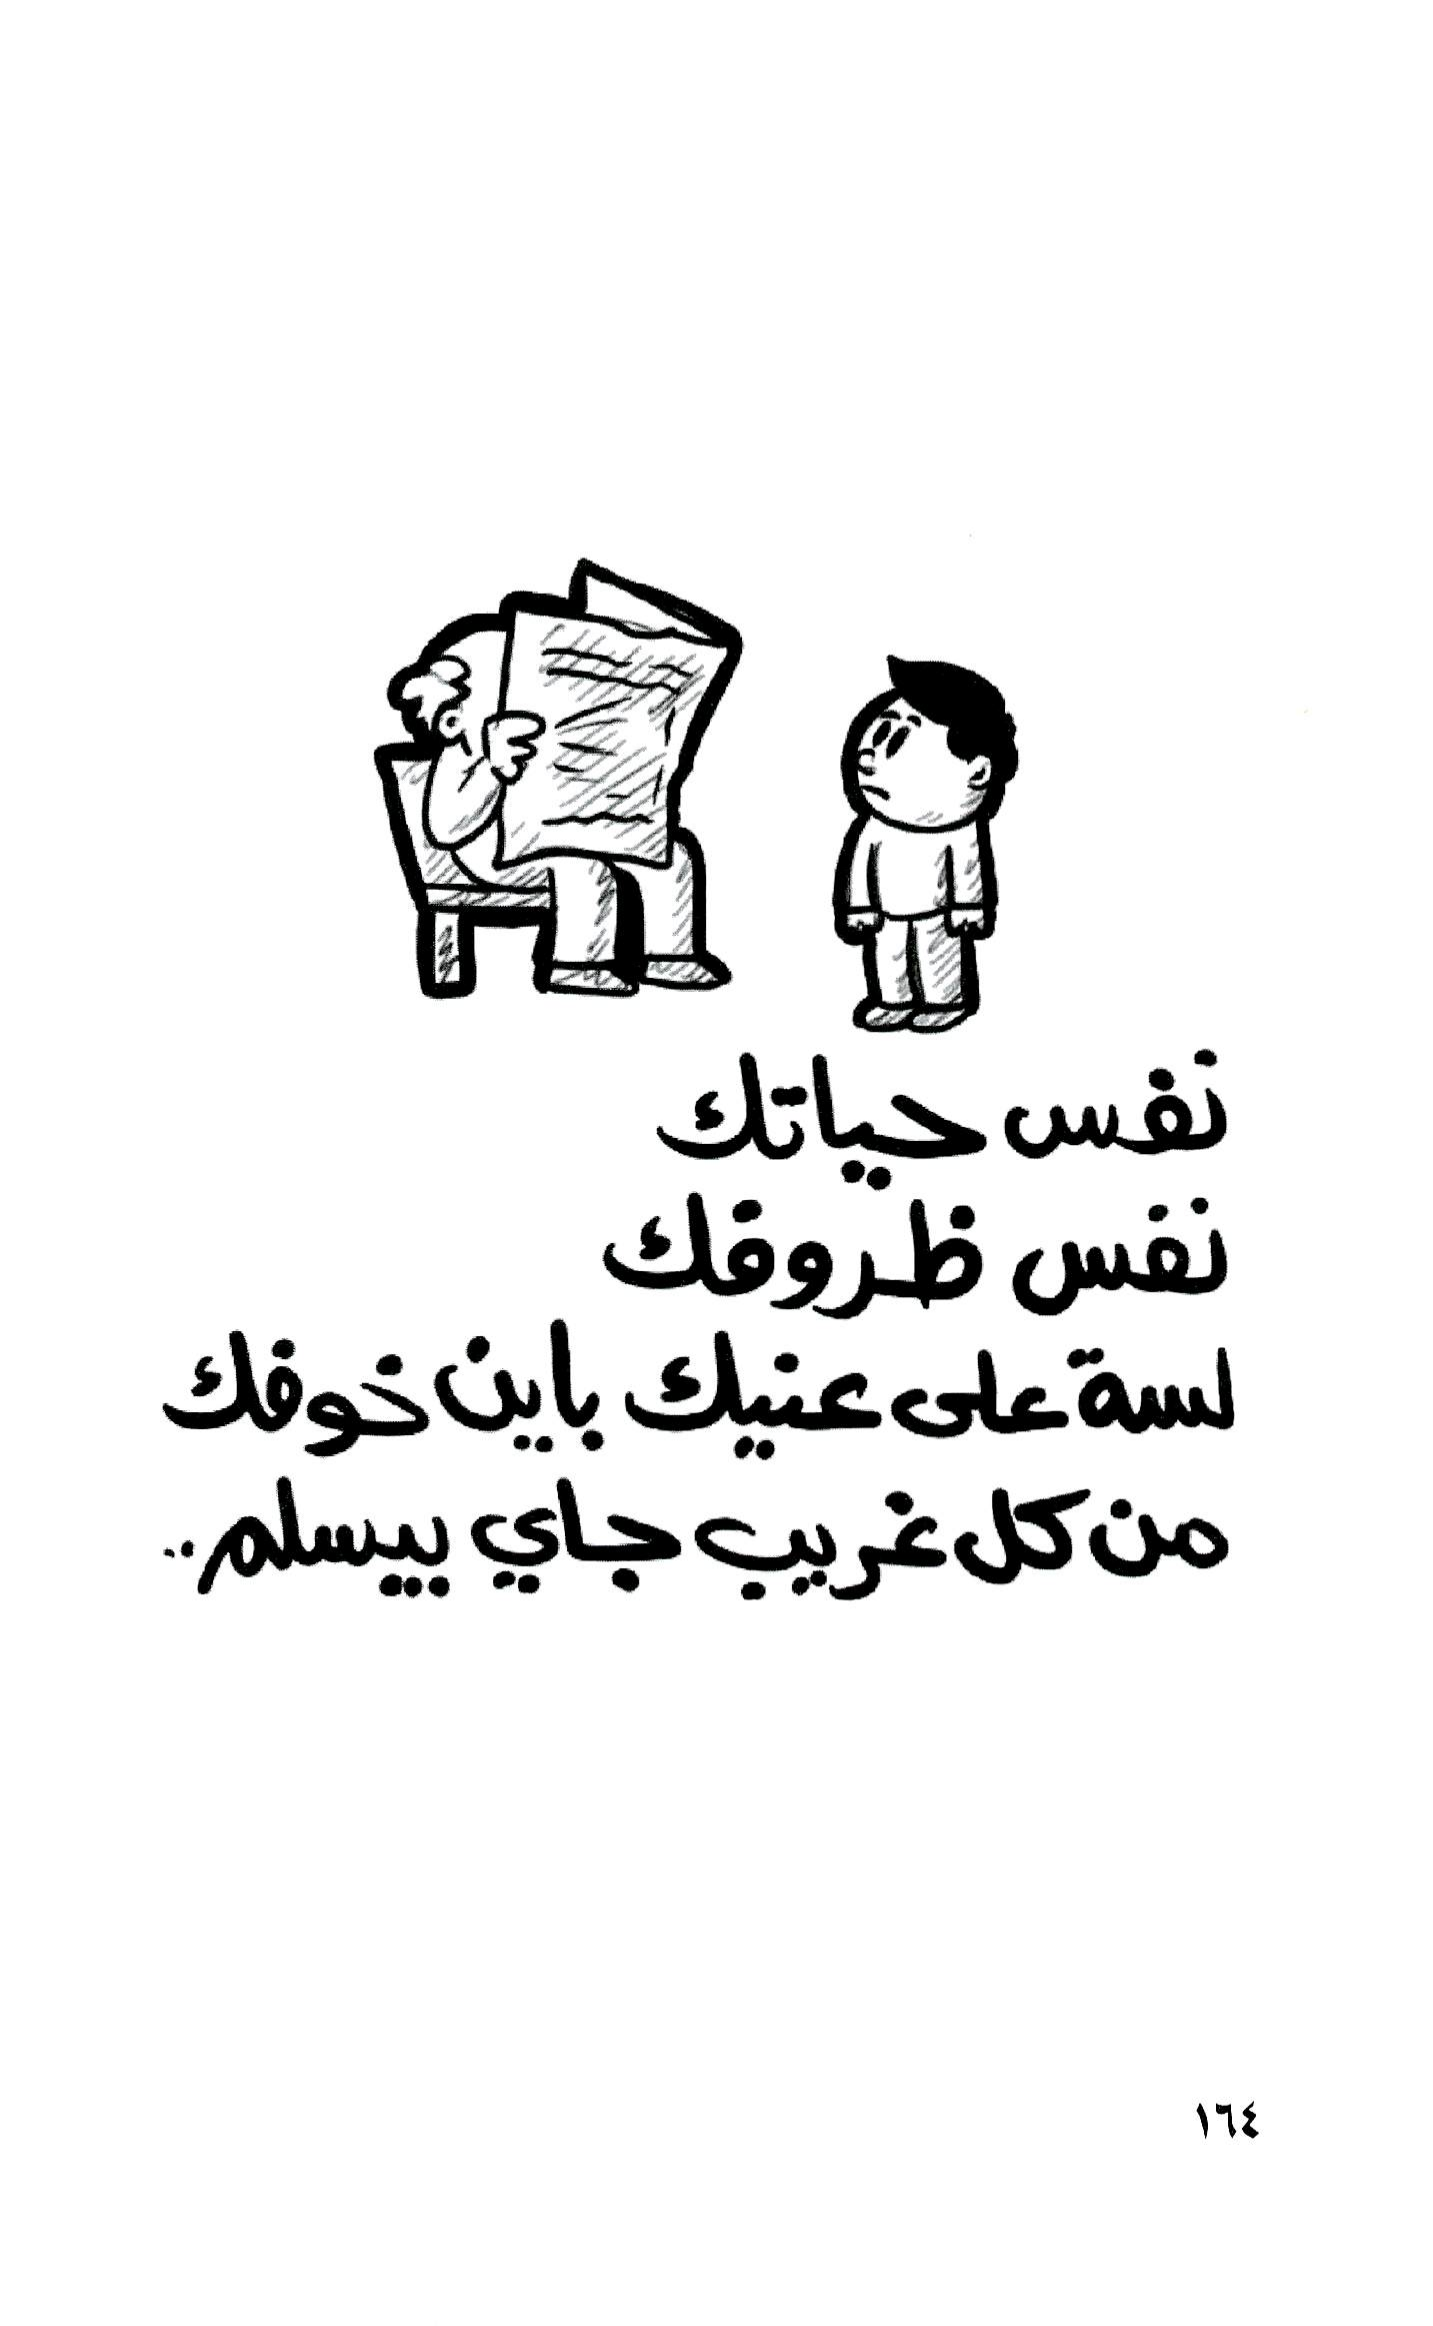 نفس حياتك
نفس ظروفك
لسة على عنيك باين خوفك
من كل غريب جاي بيسلم..
١٦٤